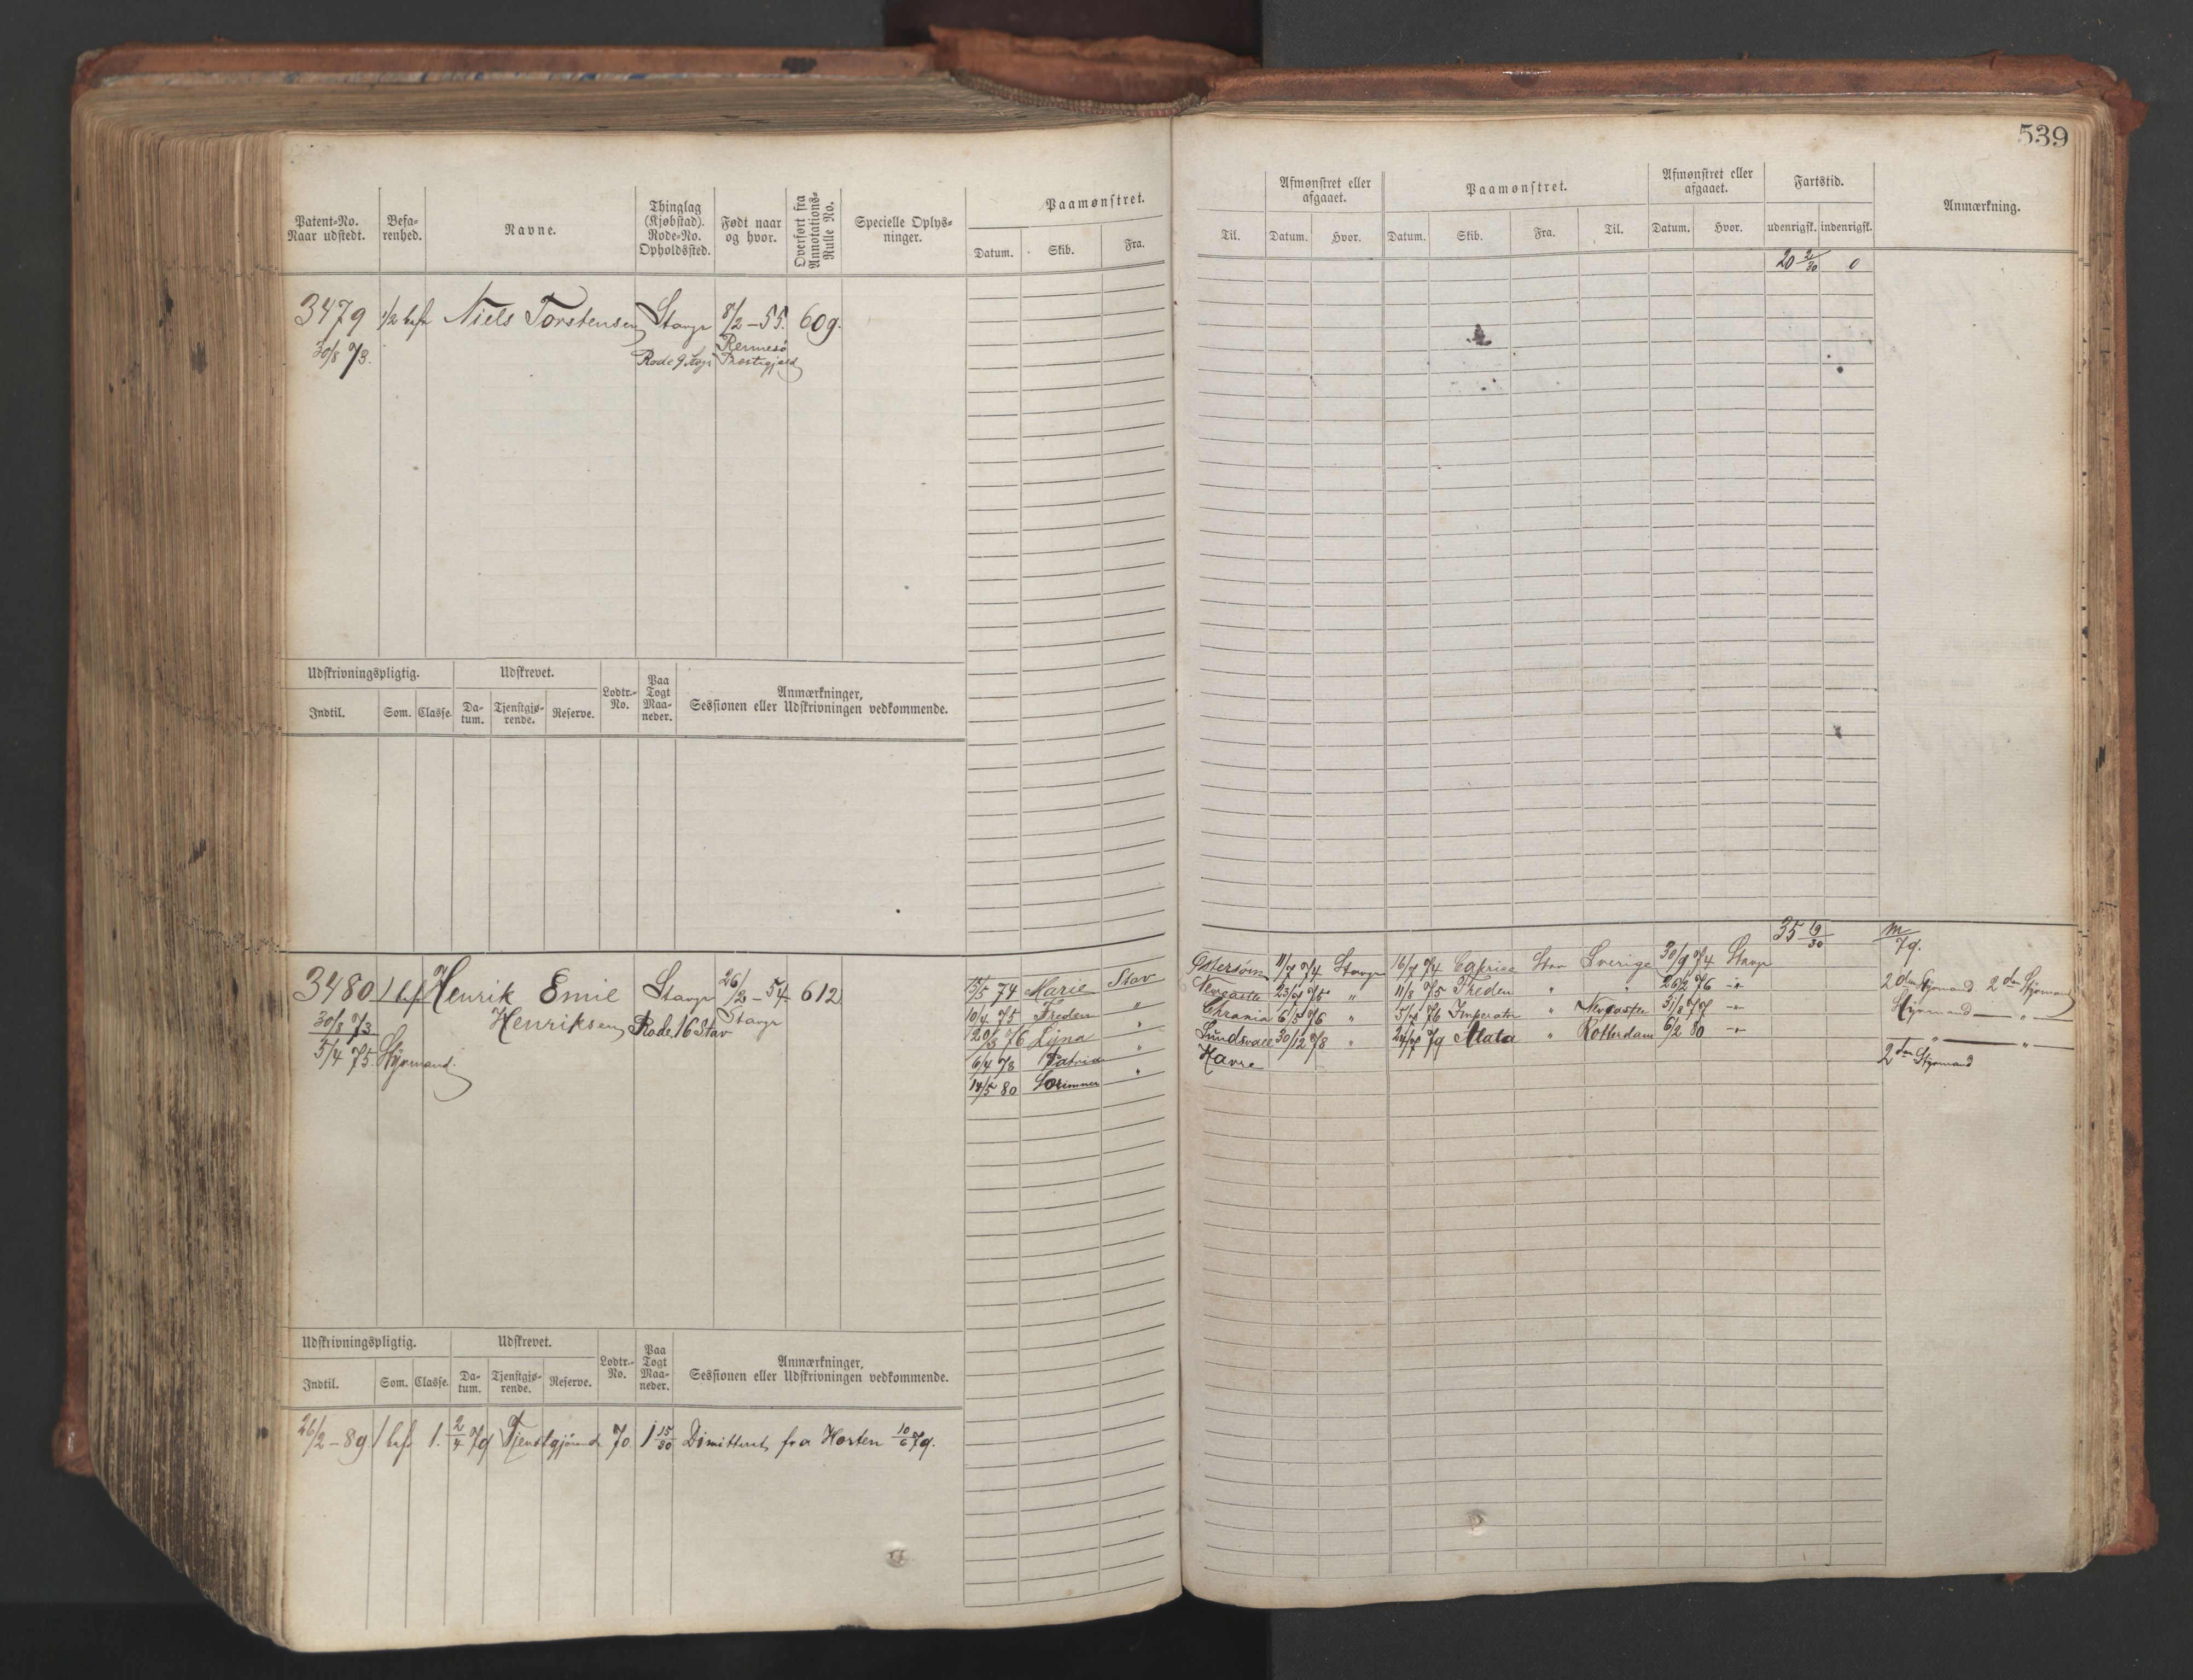 539
Patent-No. Naar udstedt.
Befarenhed.
Navne.
Thinglag (Kjøbstad). Rode-No. Opholdssted.
Født naar og hvor.
Overført fra Annotations-Rulle No.
Specielle Oplysninger.
Paamønstret.
Datum. Skib. Fra.
Til.
Afmønstret eller afgaaet.
Datum. Hvor.
Paamønstret.
Datum. Skib. Fra. Til.
Afmønstret eller afgaaet.
Datum. Hvor.
Fartstid.
udenrigsk. indenrigsk.
Anmærkning.
0
3479 1/2 bef Niels Torstensen Stavgr 8/2-55. 609.
30/8 73. Rode 9 Stvgr Rennesø Præstegjæld
Udskrivningspligtig. Udskrevet. Lodtr.-No. Paa Togt Maaneder. Anmærkninger, Sessionen eller Udskrivningen vedkommende.
Indtil. Som. Classe. Datum. Tjenstgjørende. Reserve.
35 19/30
3480 1 bef Henrik Emil Stavgr 26/2-54 612
Henriksen Rode 16 Stav Stavgr
30/8 73
5/4 75. Styrmand.
15/5 74 Marie Stav Østersøen 11/7 74 Stavgr 16/7 74 Caprice Stav Sverige 30/9 74 Stavgr
10/4 75 Freden " Newcastle 23/7 75 " 11/8 75 Freden " " 26/2 76 -"-
20/3 76 Lyna " Chrania 6/5 76 " Imperator " Newcastle 31/8 77 -"-
6/4 78 Patria " Sundsvall 30/12 78 " 79 Alata " Rotterdam 6/2 80 -"-
14/5 80 " Havre
2den Styrmand 2den Styrmand
Styrmand — " —
" — " —
2den Styrmand
Udskrivningspligtig. Udskrevet. Lodtr.-No. Paa Togt Maaneder. Anmærkninger, Sessionen eller Udskrivningen vedkommende.
Indtil. Som. Classe. Datum. Tjenstgjørende. Reserve.
26/2-89 1 bef 1. 2/4 79 Tjenstgjørende 70. 1 15/30 Dimitteret fra Horten 10/6 79.